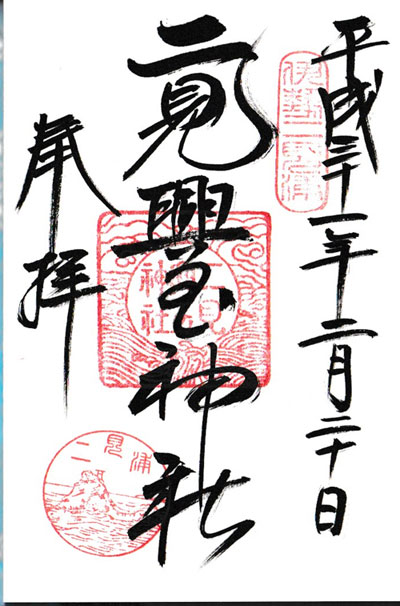 平成三十一年二月二十日
伊勢二見浦
二見興玉神社
神社
奉拝
二見浦